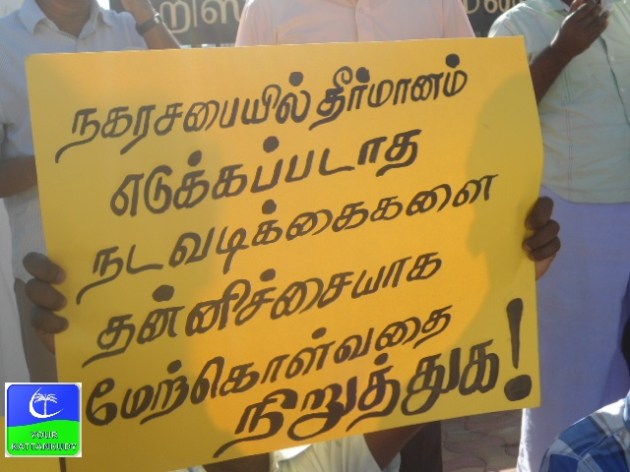 நகரசபையில் தீர்மானம்
எடுக்கப்படாத
நடவடிக்கைகளை
தன்னிச்சையாக
மேற்கொள்வதை
நிறுத்துக!
YOUR
KATTANKUDY